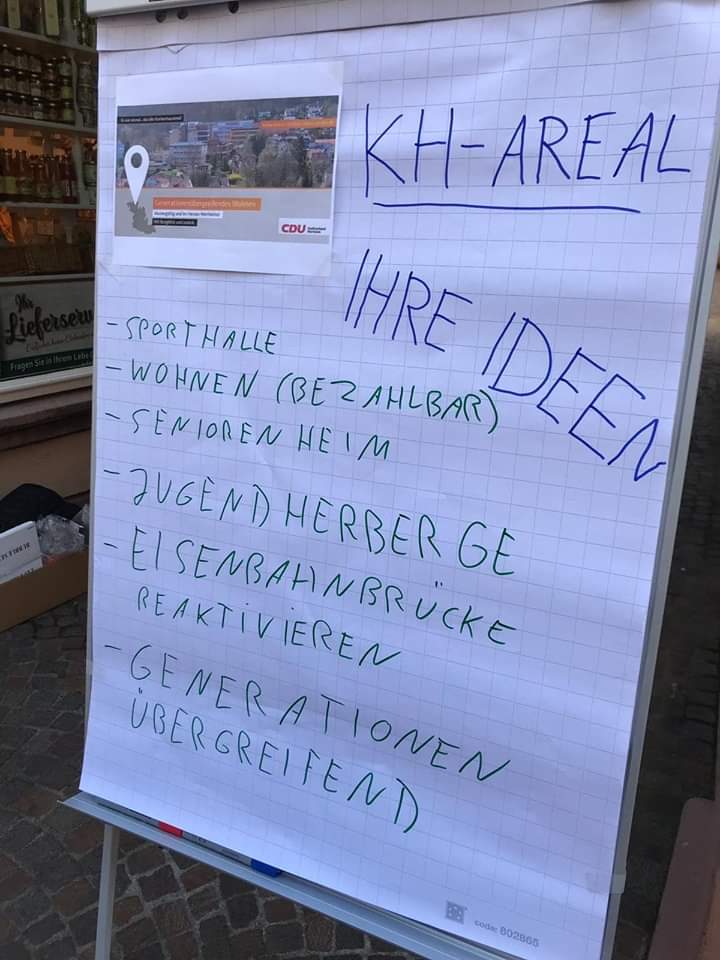 KH-AREAL
IHRE IDEEN
Generationenübergreifendes Wohnen
CDU
- SPORTHALLE
- WOHNEN (BEZAHLBAR)
- SENIOREN HEIM
- JUGENDHERBERGE
- EISENBAHNBRÜCKE
REAKTIVIEREN
- GENERATIONEN
ÜBERGREIFEND
Ihr
Lieferserv
Fragen Sie in Ihrem Lebe
code: 802865